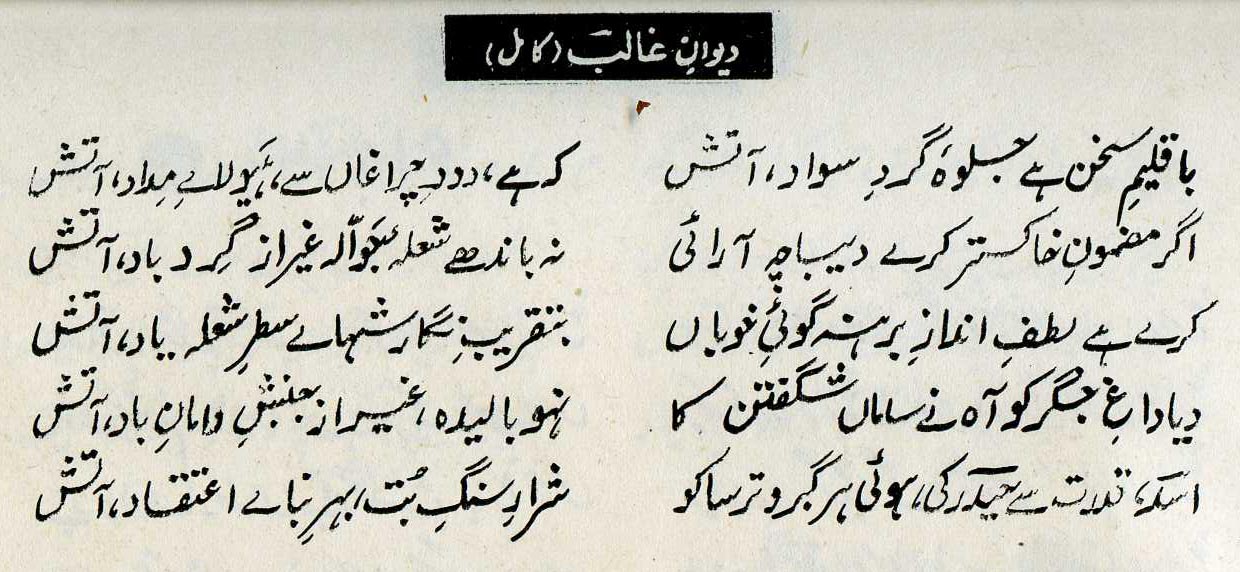 دیوانِ غالب (کامل)
باقلیمِ سخن ہے جلوۂ گردِ سواد، آتش کہ ہے، دودِ چراغاں سے، ہیولاےِ مداد، آتش
اگر مضمونِ خاکستر کرے دیباچہ آرائی نہ باندھے شعلہ جوّالہ غیر از گِردباد، آتش
کرے ہے لطفِ اندازِ برہنہ گوئیِ خوباں بتقریبِ نگارشہاے سطرِ شعلہ یاد، آتش
دیا داغِ جگر کو آہ نے ساماں شگفتن کا نہو بالیدہ، غیر از جنبشِ دامانِ باد، آتش
اسدؔ، قدرت سے حیدر کی، ہوئی ہر گبر و ترسا کو شرارِ سنگِ بُت، بہرِ بناے اعتقاد، آتش